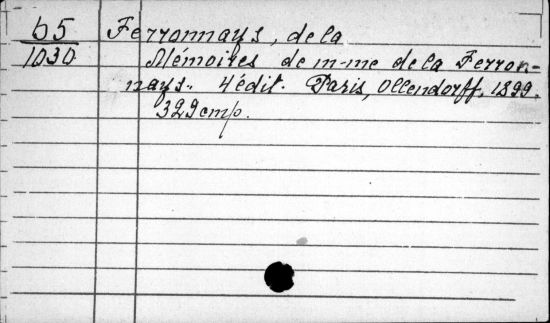 65
1030
Ferronnays, de la
Mémoires de m-me de la Ferron-
nays. 4 édit. Paris, Ollendorff, 1899.
329 стр.